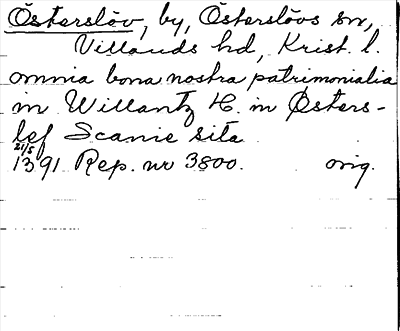 Österslöv, by, Österslövs sn,
Villands hd, Krist. l.
omnia bona nostra patrimonialia
in Willantz H. in Østers-
lef Scanie sita
21/5
1391 Rep. nr 3800. orig.